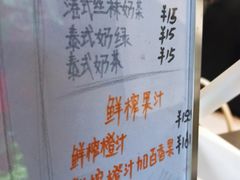 港式丝袜奶茶 ¥15
泰式奶绿 ¥15
泰式奶茶 ¥15
鲜榨果汁
鲜榨橙汁
鲜榨橙汁加百香果